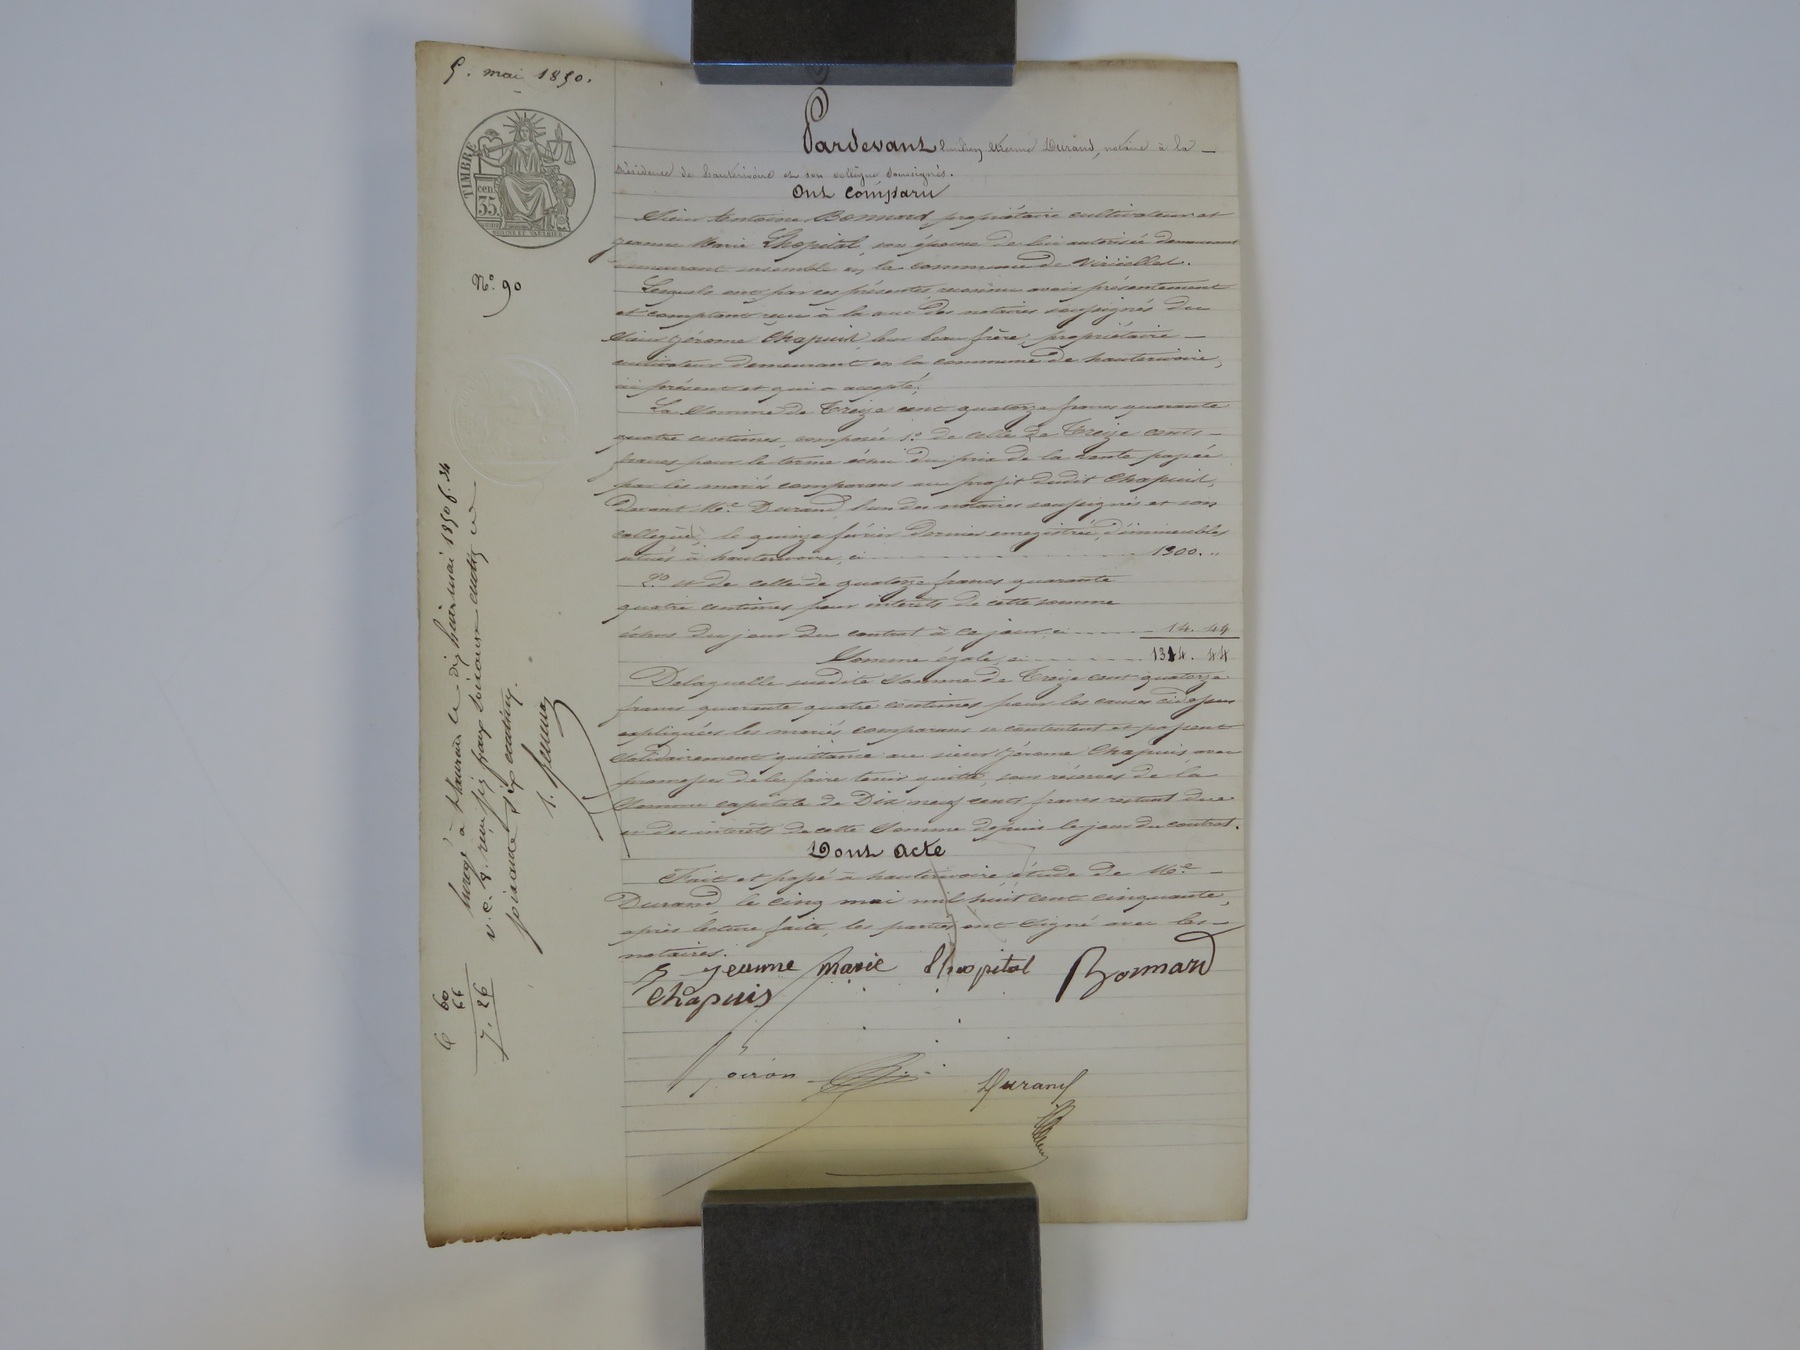 5. mai 1850.
TIMBRE
cen. 35.
No. 90
Pardevant Durand, notaire à la
résidence de hauterivoire et son collègue soussignés.
Ont comparu
Sieur Antoine Bonnard propriétaire cultivateur et
jeanne Marie Lhopital son épouse de lui autorisée demeurant
demeurant ensemble en la commune de
Lesquels ont par ces présentes reconnu avoir présentement
et comptant reçu à la vue des notaires soussignés du
Sieur Jérome Chapuis leur beau frère, propriétaire
cultivateur demeurant en la commune de hauterivoire,
ici présent et qui a accepté,
La Somme de Treize cent quatorze francs quarante
quatre centimes, composée 1o. de celle de Treize cents
francs pour le terme échu du prix de la vente passée
par les mariés comparans au profit dudit Chapuis,
devant Me. Durand l'un des notaires soussignés et son
collègue, le quinze février dernier enregistrée, d'immeubles
situés à hauterivoire, ci 1300. "
2o. et de celle de quatorze francs quarante
quatre centimes pour intérêts de cette somme
échus du jour du contrat à ce jour, ci 14. 44
Somme égale, ci 1314. 44
De laquelle susdite Somme de Treize cent quatorze
francs quarante quatre centimes pour les causes cidessus
expliquées les mariés comparans se contentent et passent
Solidairement quittance au sieur Jérome Chapuis avec
promesses de le faire tenir quitte, sous réserves de la
Somme capitale de Dix neuf cents francs restant due
et des intérêts de cette Somme depuis le jour du contrat.
Dont acte
Fait et passé à hauterivoire étude de Me.
Durand le cinq mai mil huit cent cinquante,
après lecture faite, les parties ont Signé avec les
notaires.
jeanne marie lhopital Bonnard
Chapuis
Durand
Enregé à le dix huit mai 1850 f. 34
v. c. 8. reçu six francs soixante centimes
soixante six centimes.
6 60
66
7. 26